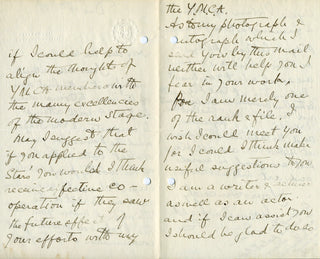 if I could help to
align the thought of
YMCA members with
the many excellencies
of the modern stage.
May I suggest that
if you applied to the
Stars you would I think
receive effective co-
operation if they saw
the future effect of
your efforts with my
the YMCA.
As to my photograph &
autograph which I
send you by this mail
neither will help you I
fear in your work.
I am merely one
of the rank & file, I
wish I could meet you
for I could I think make
useful suggestions to you
I am a writer &
as well as an actor
and if I can assist you
I should be glad to do so